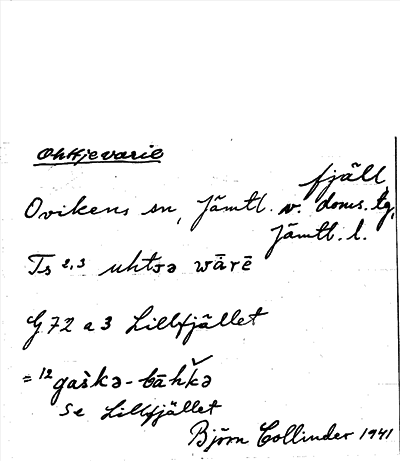 Ohtjevarie
fjäll,
Ovikens sn, Jämtl. v. doms. tg,
Jämtl. l.
Ts 2,3 uhtsə wārē
G 72 a 3 Lillfjället
= 12 gaškə-bāhḱə
se Lillfjället
Björn Collinder 1941